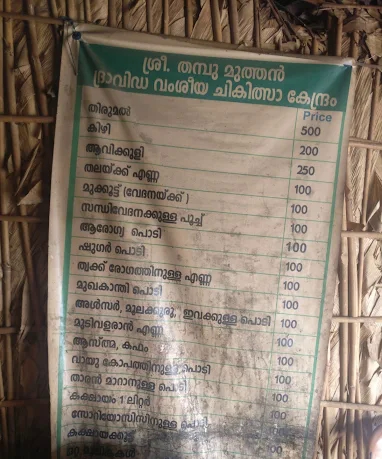 ശ്രീ. തമ്പു മുത്തൻ
ദ്രാവിഡ വംശീയ ചികിത്സാ കേന്ദ്രം
Price
തിരുമൽ 500
കിഴി 200
ആവിക്കുളി 250
തലയ്ക്ക് എണ്ണ 100
മുക്കുട്ട് (വേദനയ്ക്ക്) 100
സന്ധിവേദനക്കുള്ള പൂച്ച് 100
ആരോഗ്യ പൊടി 100
ഷുഗർ പൊടി 100
ത്വക്ക് രോഗത്തിനുള്ള എണ്ണ 100
മുഖകാന്തി പൊടി 100
അൾസർ, മൂലക്കുരു, ഇവക്കുള്ള പൊടി 100
മുടിവളരാൻ എണ്ണ 100
ആസ്ത്മ, കഫം 100
വായു കോപത്തിനുള്ള പൊടി 100
താരൻ മാറാനുള്ള പൊടി 100
കക്ഷായം 1 ലിറ്റർ 100
സോറിയോസിസിനുള്ള പൊടി